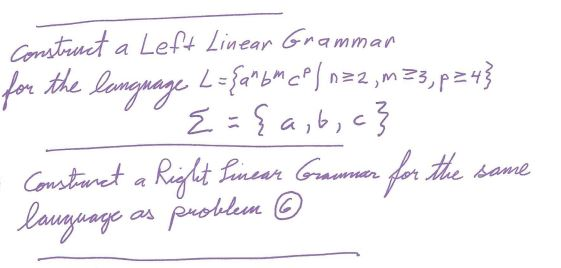 Construct a Left Linear Grammar
for the language L = {aⁿbᵐcᵖ | n ≥ 2, m ≥ 3, p ≥ 4}
Σ = { a, b, c }
Construct a Right Linear Grammar for the same
language as problem ⑥